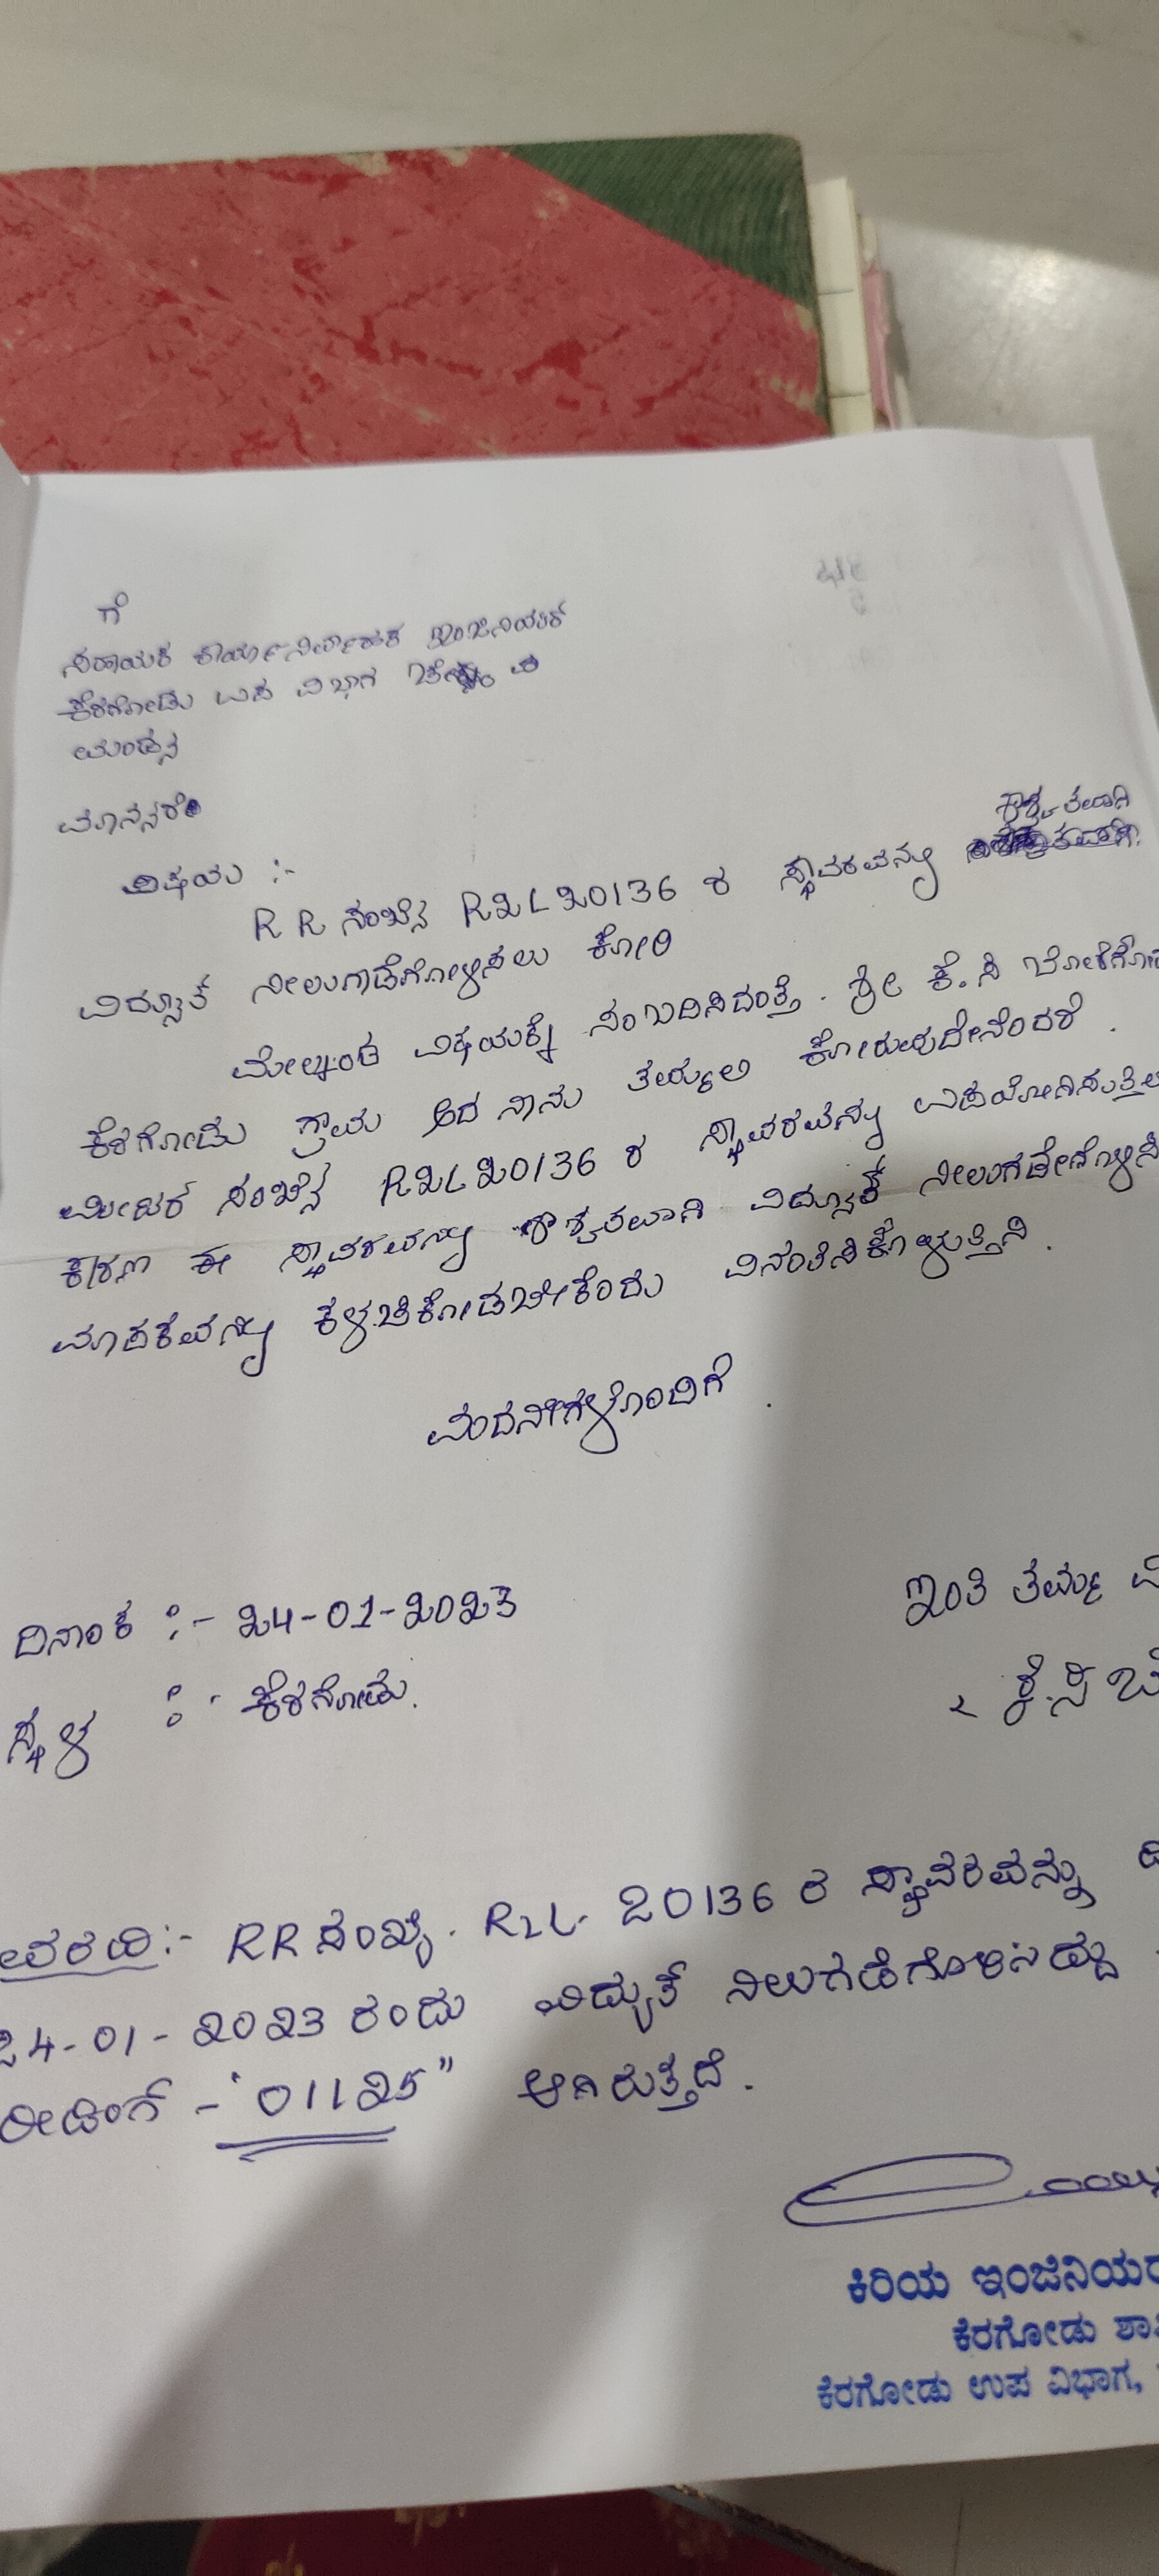 ಗೆ
ಸಹಾಯಕ ಕಾರ್ಯನಿರ್ವಾಹಕ ಇಂಜಿನಿಯರ್
ಕೆರಗೋಡು ಉಪ ವಿಭಾಗ
ಮಂಡ್ಯ
ಮಾನ್ಯರೇ
ಶಾಶ್ವತವಾಗಿ
ವಿಷಯ :-
RR ಸಂಖ್ಯೆ R2L20136 ರ ಸ್ಥಾವರವನ್ನು
ವಿದ್ಯುತ್ ನೀಲುಗಾಡೆಗೋಳ್ಳಿಸಲು ಕೋರಿ
ಮೇಲ್ಕಂಡ ವಿಷಯಕ್ಕೆ ಸಂಬದಿಸಿದಂತ್ತೆ. ಶ್ರೀ ಕೆ.ಸಿ
ಕೆರಗೋಡು ಗ್ರಾಮ ಆದ ನಾನು ತಮ್ಮಲಿ ಕೋರುವುದೇನೆಂದರೆ .
ಮೀಟರ್ ಸಂಖ್ಯೆ R2L20136 ರ ಸ್ಥಾವರವನ್ನು
ಕಾರಣ ಈ ಸ್ಥಾವರವನ್ನು ಶಾಶ್ವತವಾಗಿ ವಿದ್ಯುತ್
ಮಾಪಕವನ್ನು ಕಳಚಿಕೋಡಬೇಕೆಂದು ವಿನಂತಿಸಿಕೊಳ್ಳುತ್ತಿನಿ .
ವಂದನೆಗಳೊಂದಿಗೆ .
ದಿನಾಂಕ :- 24-01-2023
ಇಂತಿ ತಮ್ಮ
ಸ್ಥಳ : - ಕೆರಗೋಡು.
ಕೆ.ಸಿ
ವರದಿ:- RR ಸಂಖ್ಯೆ. R2L- 20136 ರ ಸ್ಥಾವರವನ್ನು
24-01-2023 ರಂದು ವಿದ್ಯುತ್ ನಿಲುಗಡೆಗೊಳಿಸಿದ್ದು
ರೀಡಿಂಗ್ - "01125" ಆಗಿರುತ್ತದೆ.
ಕಿರಿಯ ಇಂಜಿನಿಯರ
ಕೆರಗೋಡು
ಕೆರಗೋಡು ಉಪ ವಿಭಾಗ,